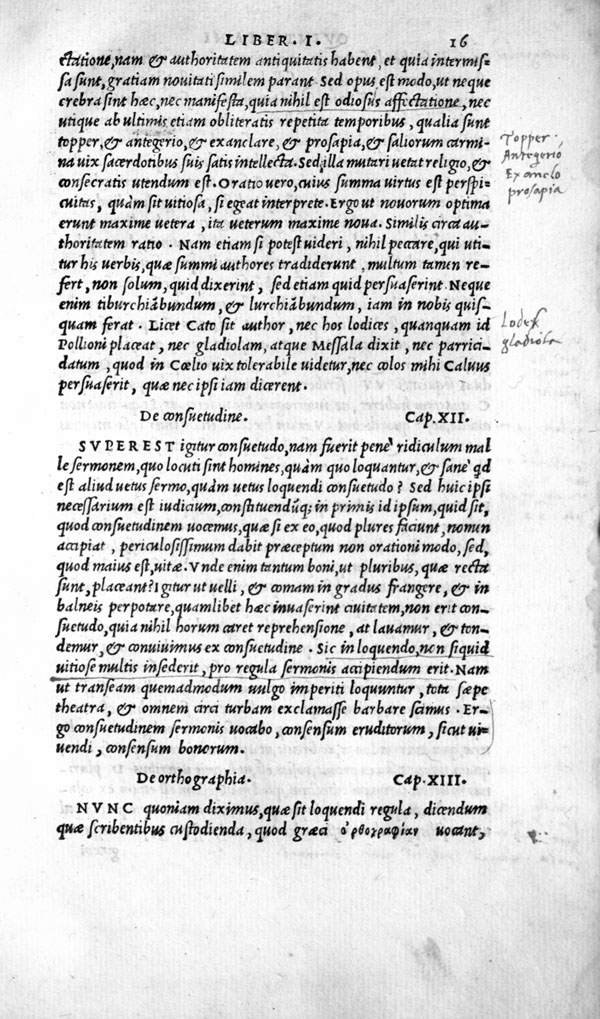 LIBER. I. 16
ctatione, nam & authoritatem antiquitatis habent, et quia intermis-
sa sunt, gratiam novitati similem parant. Sed opus est modo, ut neque
crebra sint hæc, nec manifesta, quia nihil est odiosius affectatione, nec
utique ab ultimis etiam obliteratis repetita temporibus, qualia sunt
topper, & antegerio, & exanclare, & prosapia, & saliorum carmi-
na uix sacerdotibus suis satis intellecta. Sed illa mutari uetat religio, &
consecratis utendum est. Oratio uero, cuius summa uirtus est perspi-
cuitas, quàm sit uitiosa, si egeat interprete. Ergo ut nouorum optima
erunt maxime uetera, ita ueterum maxime noua. Similis circa au-
thoritatem ratio. Nam etiam si potest uideri, nihil peccare, qui uti-
tur his uerbis, quæ summi authores tradiderunt, multum tamen re-
fert, non solum, quid dixerint, sed etiam quid persuaserint. Neque
enim tiburchiabundum, & lurchiabundum, iam in nobis quis-
quam ferat. Licet Cato sit author, nec hos lodices, quanquam id
Pollioni placeat, nec gladiolam, atque Messala dixit, nec parrici-
datum, quod in Cælio uix tolerabile uidetur, nec colos mihi Caluus
persuaserit, quæ nec ipsi iam dicerent.
Topper.
Antegerió
Exanclo
prosapia
Lodex
gladiola
De consuetudine. Cap. XII.
SVPEREST igitur consuetudo, nam fuerit penè ridiculum mal
le sermonem, quo locuti sint homines, quàm quo loquantur, & sanè qd
est aliud uetus sermo, quàm uetus loquendi consuetudo? Sed huic ipsi
necessarium est iudicium, constituendūq; in primis id ipsum, quid sit,
quod consuetudinem uocemus, quæ si ex eo, quod plures faciunt, nomen
accipiat, periculosissimum dabit præceptum non orationi modo, sed,
quod maius est, uitæ. Vnde enim tantum boni, ut pluribus, quæ recta
sunt, placeant? Igitur ut uelli, & comam in gradus frangere, & in
balneis perpotare, quamlibet hæc inuaserint ciuitatem, non erit con-
suetudo, quia nihil horum caret reprehensione, at lauamur, & ton-
demur, & conuiuimus ex consuetudine. Sic in loquendo, non siquid
uitiose multis insederit, pro regula sermonis accipiendum erit. Nam
ut transeam quemadmodum uulgo imperiti loquuntur, tota sæpe
theatra, & omnem circi turbam exclamasse barbare scimus. Er-
go consuetudinem sermonis uocabo, consensum eruditorum, sicut ui-
uendi, consensum bonorum.
De orthographia. Cap. XIII.
NVNC quoniam diximus, quæ sit loquendi regula, dicendum
quæ scribentibus custodienda, quod græci ὀρθογραφίαν uocant,